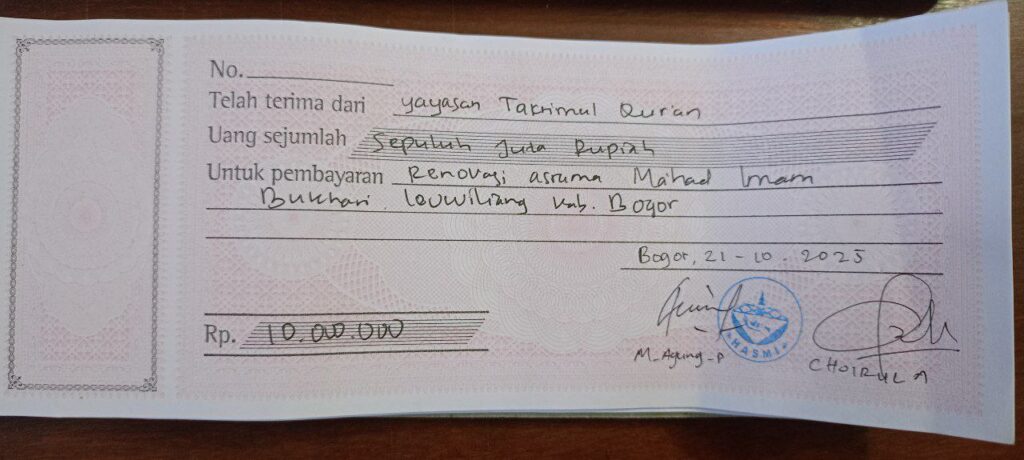 No.
Telah terima dari Yayasan Takrimul Qur'an
Uang sejumlah Sepuluh Juta Rupiah
Untuk pembayaran Renovasi asrama Ma'had Imam
Bukhari Leuwiliang Kab. Bogor
Bogor, 21-10-2025
Rp. 10.000.000
HASMI
M_Agung_P
CHOIRUL A